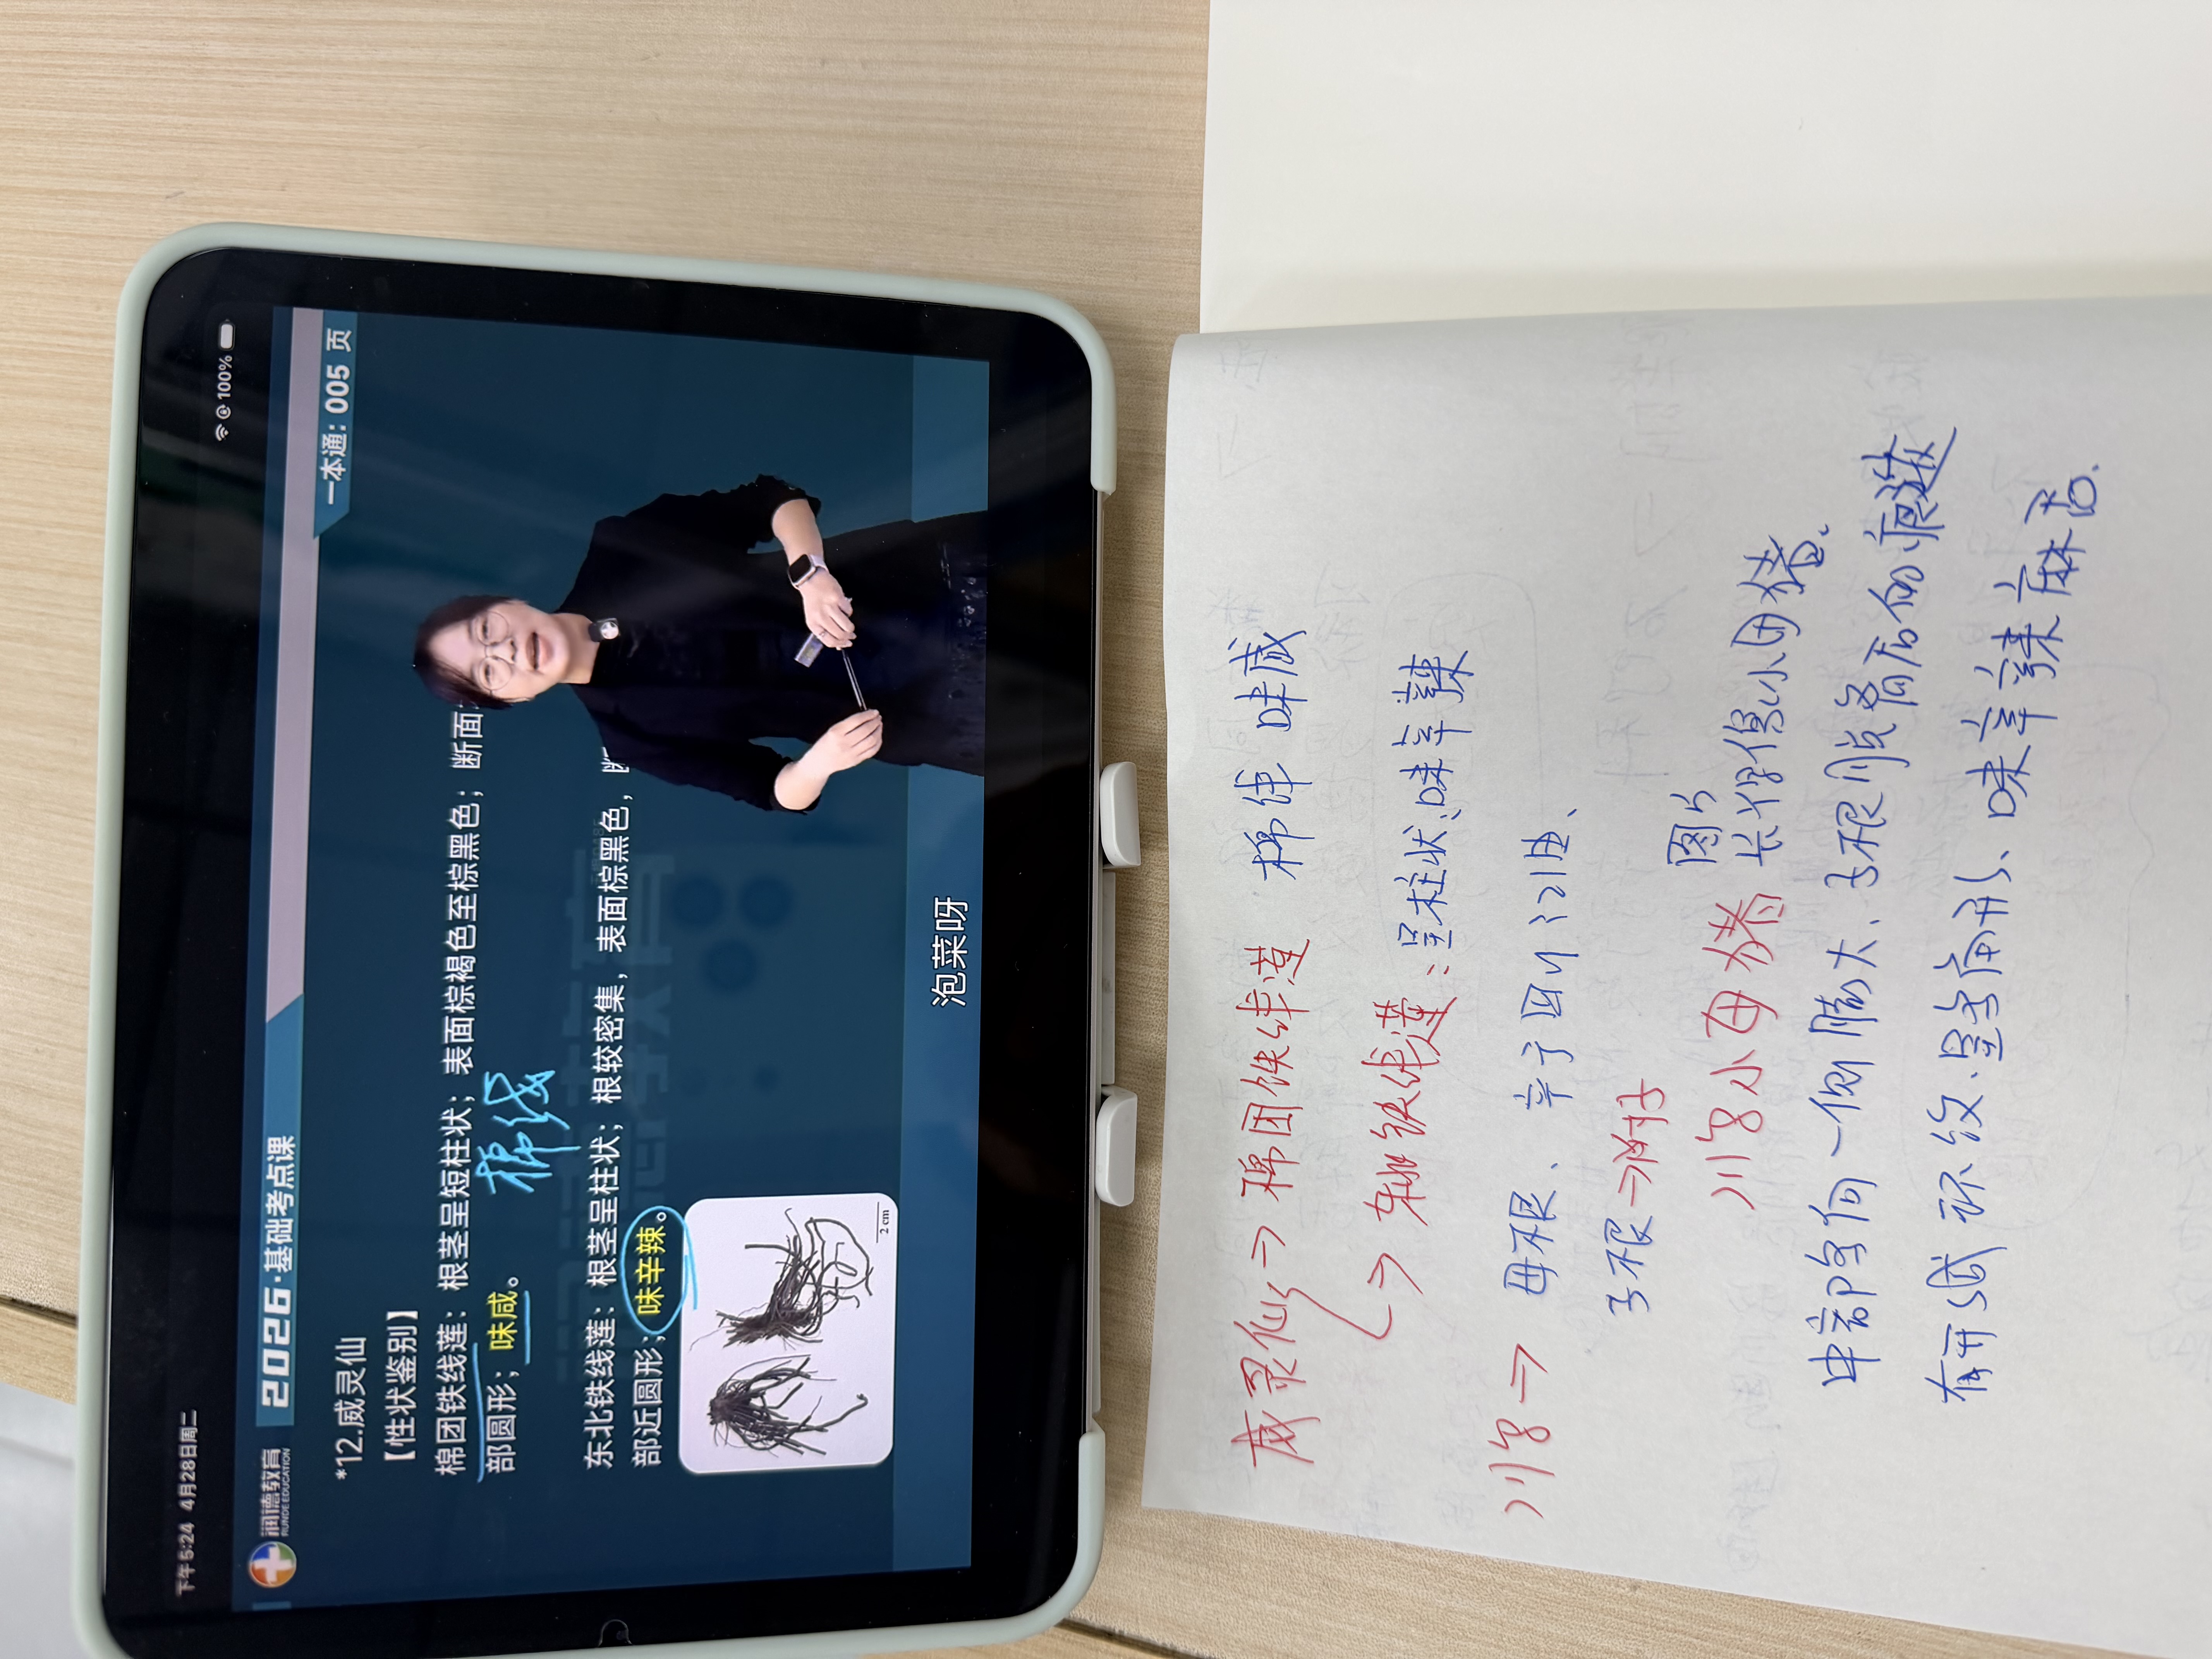 下午5:24 4月28日周二
100%
润德教育
RUNDE EDUCATION
2026·基础考点课
一本通：005 页
*12.威灵仙
【性状鉴别】
棉团铁线莲：根茎呈短柱状；表面棕褐色至棕黑色；断面
部圆形；味咸。
棉线
东北铁线莲：根茎呈柱状；根较密集，表面棕黑色，断
部近圆形；味辛辣。
2 cm
泡菜呀
威灵仙→棉团铁线莲 棉线 味咸
→ 铁线莲：呈柱状、味辛辣
川乌→ 母根、辛于四川江油、
子根→附子
图片
川乌小母猪 长得像小母猪、
中部多向一侧膨大、子根脱落后的痕迹
有形成层环纹、呈多角形、味辛辣麻舌.